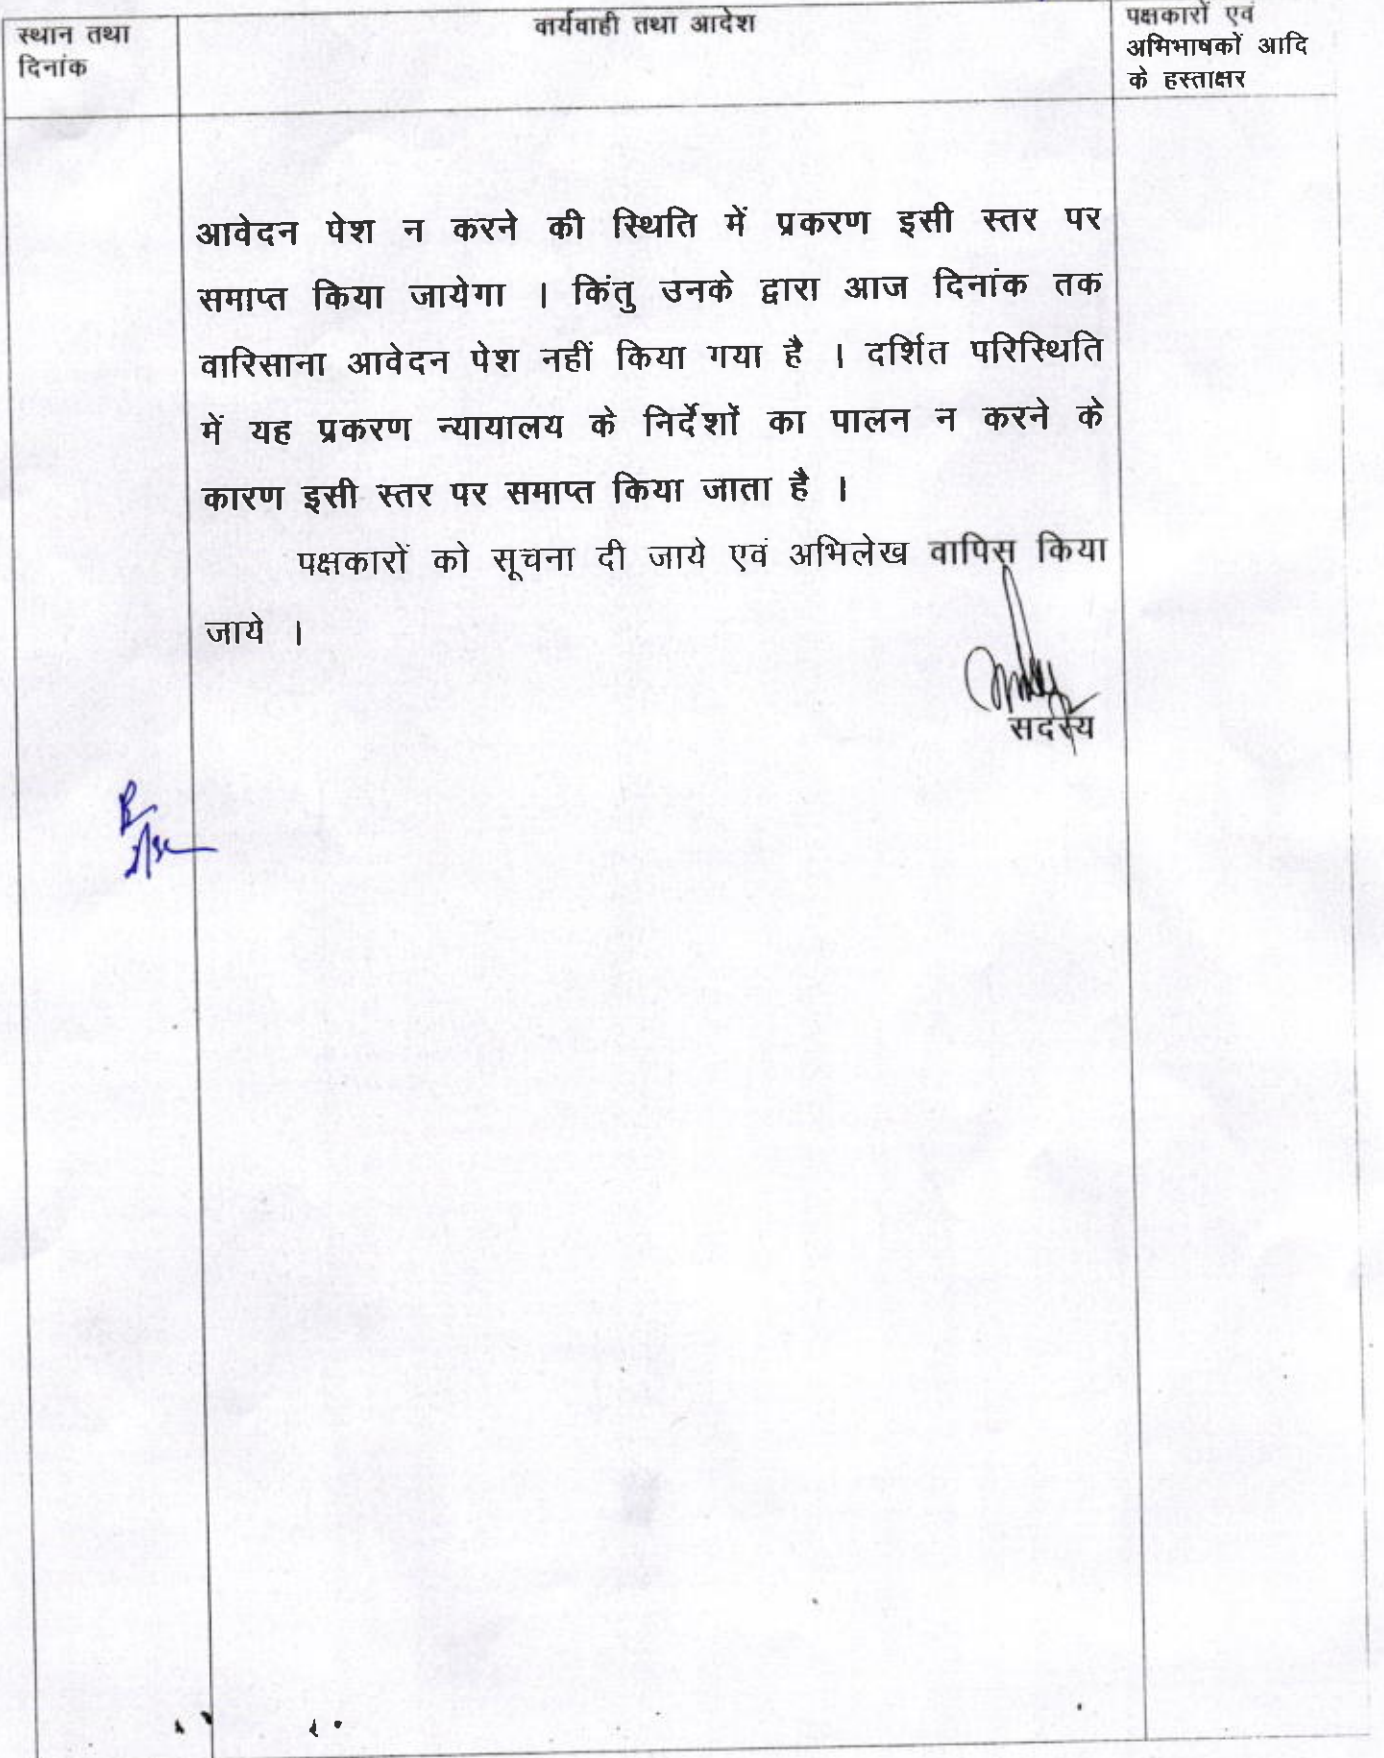 स्थान तथा
दिनांक
वार्यवाही तथा आदेश
पक्षकारों एवं
अभिभाषकों आदि
के हस्ताक्षर
आवेदन पेश न करने की स्थिति में प्रकरण इसी स्तर पर
समाप्त किया जायेगा । किंतु उनके द्वारा आज दिनांक तक
वारिसाना आवेदन पेश नहीं किया गया है । दर्शित परिस्थिति
में यह प्रकरण न्यायालय के निर्देशों का पालन न करने के
कारण इसी स्तर पर समाप्त किया जाता है ।
पक्षकारों को सूचना दी जाये एवं अभिलेख वापिस किया
जाये ।
सदस्य